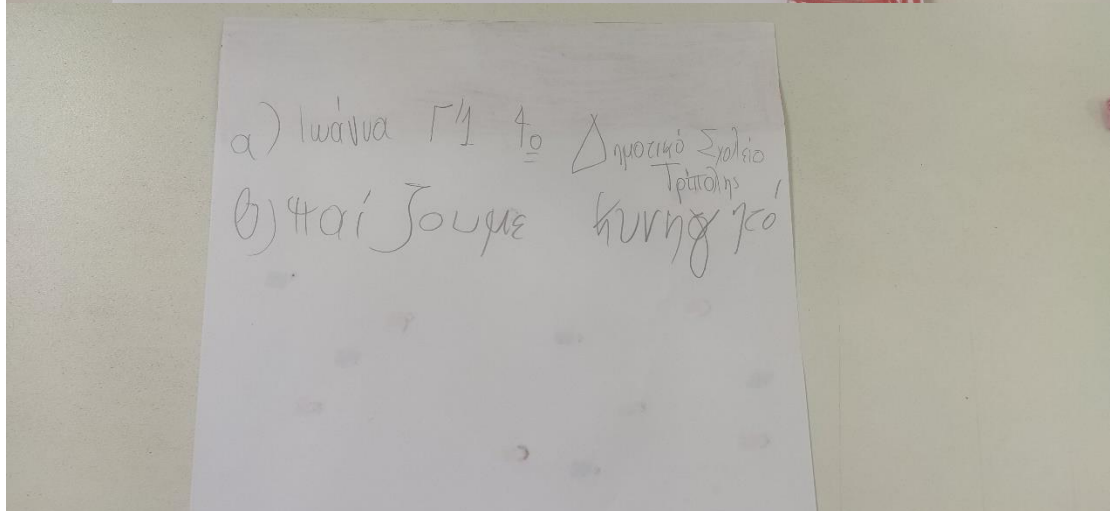 α) Ιωάννα Γ'1 4ο Δημοτικό Σχολείο
Τρίπολης
β) παίζουμε κυνηγκό